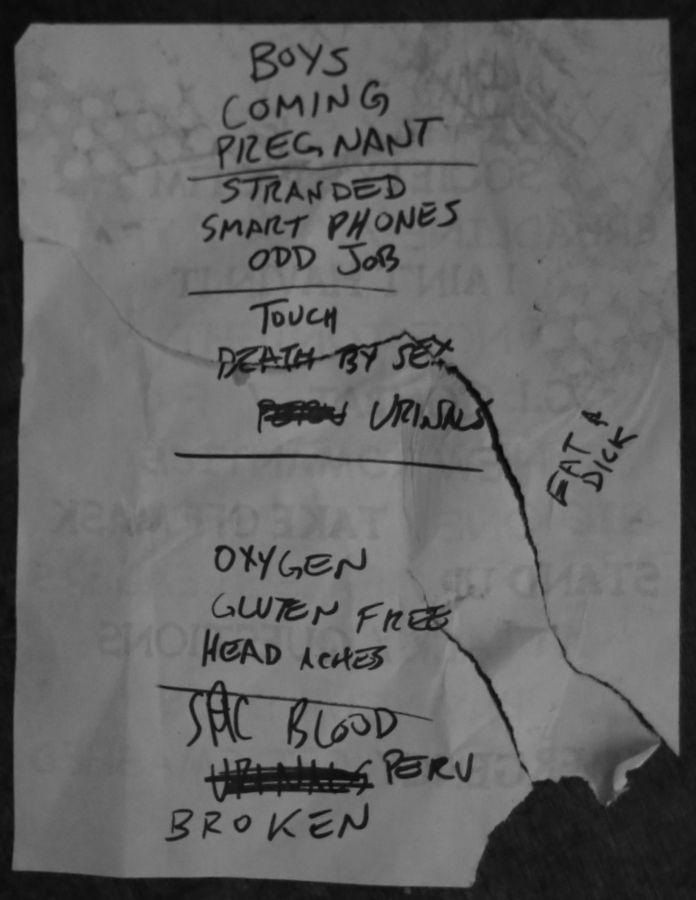 BOYS
COMING
PREGNANT
STRANDED
SMART PHONES
ODD JOB
TOUCH
DEATH BY SEX
PERU URINALS
FAT A
DICK
OXYGEN
GLUTEN FREE
HEAD ACHES
BLOOD
URINALS PERU
BROKEN
I AIN'T
TAKE OFF MASK
STAND UP